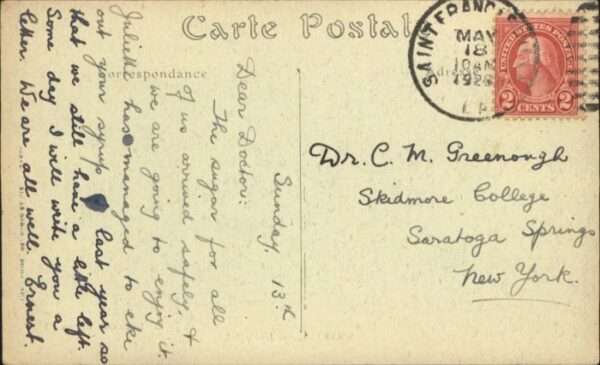 Carte Postale
Correspondance
SAINT FRANCIS
MAY
18
10 AM
UNITED STATES POSTAGE
2 CENTS 2
Sunday, 13th
Dear Doctor:
The sugar for all
of us arrived safely, &
we are going to enjoy it.
Juliette has managed to eke
out your syrup last year so
that we still have a little left.
Some day I will write you a
letter. We are all well. Ernest.
Dr. C. M. Greenough
Skidmore College
Saratoga Springs
New York.